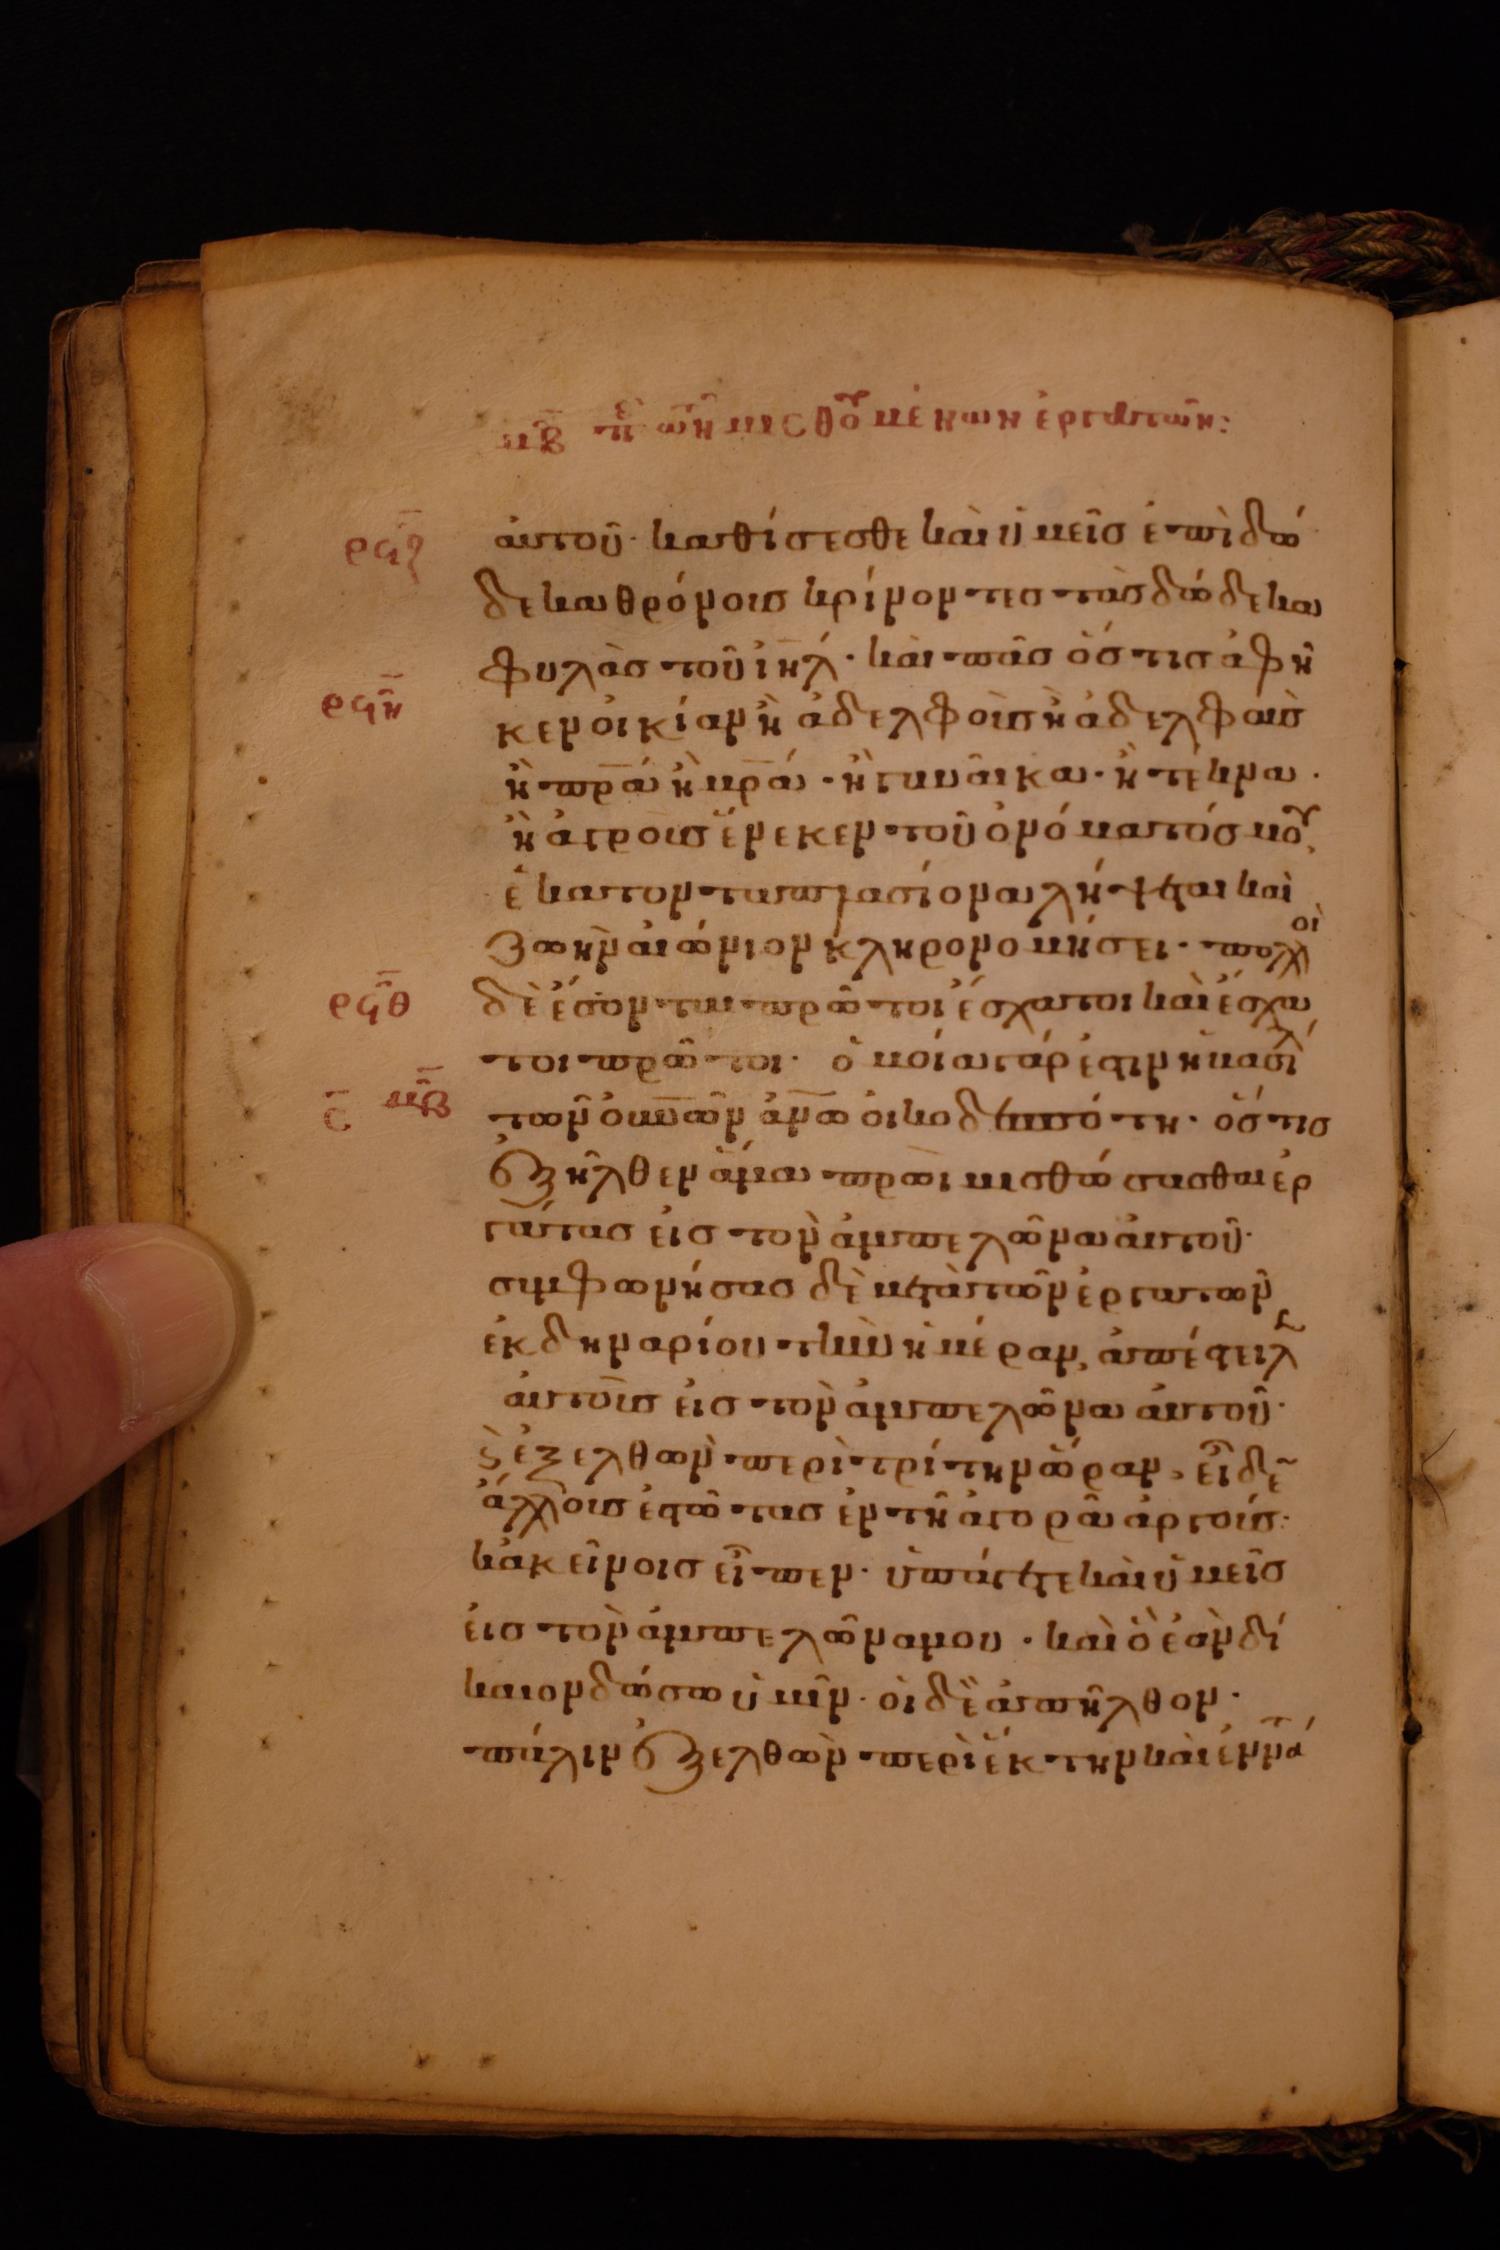 μβ π̅ τῶν μισθουμένων ἐργατῶν:
ρϟζ
αὐτοῦ· καθίσεσθε καὶ ὑμεῖς ἐπὶ δώ
δεκα θρόνους κρίνοντες τὰς δώδεκα
φυλὰς τοῦ ἰη̅λ· καὶ πᾶς ὅστις ἀφῆ
ρϟη
κεν οἰκίαν ἢ ἀδελφοὺς ἢ ἀδελφὰς
ἢ πρ̅α ἢ μρ̅α· ἢ γυναῖκα· ἢ τέκνα·
ἢ ἀγροὺς ἕνεκεν τοῦ ὀνόματός μου,
ἑκατονταπλασίονα λήψεται καὶ
ζωὴν αἰώνιον κληρονομήσει· πολλοὶ
ρϟθ
δὲ ἔσονται πρῶτοι ἔσχατοι καὶ ἔσχα
τοι πρῶτοι· ὁμοία γάρ ἐστιν ἡ βασιλ
ς̅ μβ
τῶν οὐν̅ῶν ἀν̅ω οἰκοδεσπότη· ὅστις
ἐξῆλθεν ἅμα πρωῒ μισθώσασθαι ἐρ
γάτας εἰς τὸν ἀμπελῶνα αὐτοῦ·
συμφωνήσας δὲ μετὰ τῶν ἐργατῶν
ἐκ δηναρίου τὴν ἡμέραν, ἀπέστειλ
αὐτοὺς εἰς τὸν ἀμπελῶνα αὐτοῦ·
ϗ ἐξελθὼν περὶ τρίτην ὥραν, εἶδε
ἄλλους ἑστῶτας ἐν τῇ ἀγορᾷ ἀργούς·
κἀκείνοις εἶπεν· ὑπάγετε καὶ ὑμεῖς
εἰς τὸν ἀμπελῶνα μου· καὶ ὃ ἐὰν δί
καιον δώσω ὑμῖν· οἱ δὲ ἀπῆλθον·
πάλιν ἐξελθὼν περὶ ἕκτην καὶ ἐννά